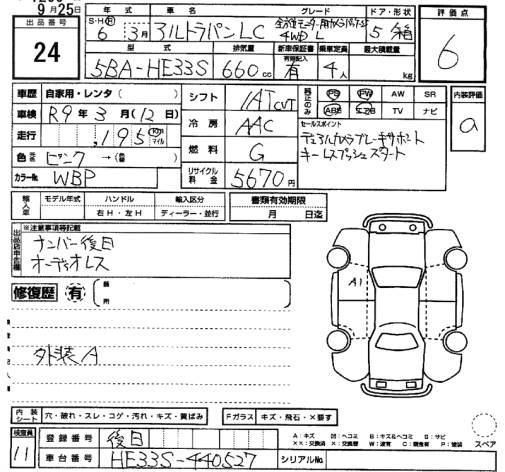 9月25日
出品番号
24
年式 車名 グレード ドア・形状
S・H・R 6年3月 アルトラパンLC 全方位モニター用カメラパッケージ 4WD L 5 箱
型式 排気量 新車保証書 乗車定員 最大積載量
5BA-HE33S 660cc 有 4人 kg
評価点
6
車歴 自家用・レンタ( )
車検 R9年3月(12日)
走行 ,195 km マイル
色 ピンク → (色替)
カラーNo. WBP
シフト IAT CVT
冷房 AAC
燃料 G
リサイクル料金 5670円
PS PW AW SR
ABS エアB TV ナビ
セールスポイント
デュアルカメラブレーキサポート
キーレスプッシュスタート
内装評価
a
輸入車 モデル年式 ハンドル 輸入区分
右H・左H ディーラー・並行
書類有効期限
月 日迄
出品店申告欄
※注意事項等記載
ナンバー後日
オーディオレス
修復歴 有 箇所
A1
外装A
内装シート 穴・破れ・スレ・コゲ・汚れ・キズ・黄ばみ
Fガラス キズ・飛石・×要す
検査員
11
登録番号 後日
車台番号 HE33S-440527
シリアルNo.
A:キズ U:ヘコミ B:キズ&ヘコミ S:サビ
XX:交換済 X:交換要 W:波有 C:腐食有 P:塗装
スペア